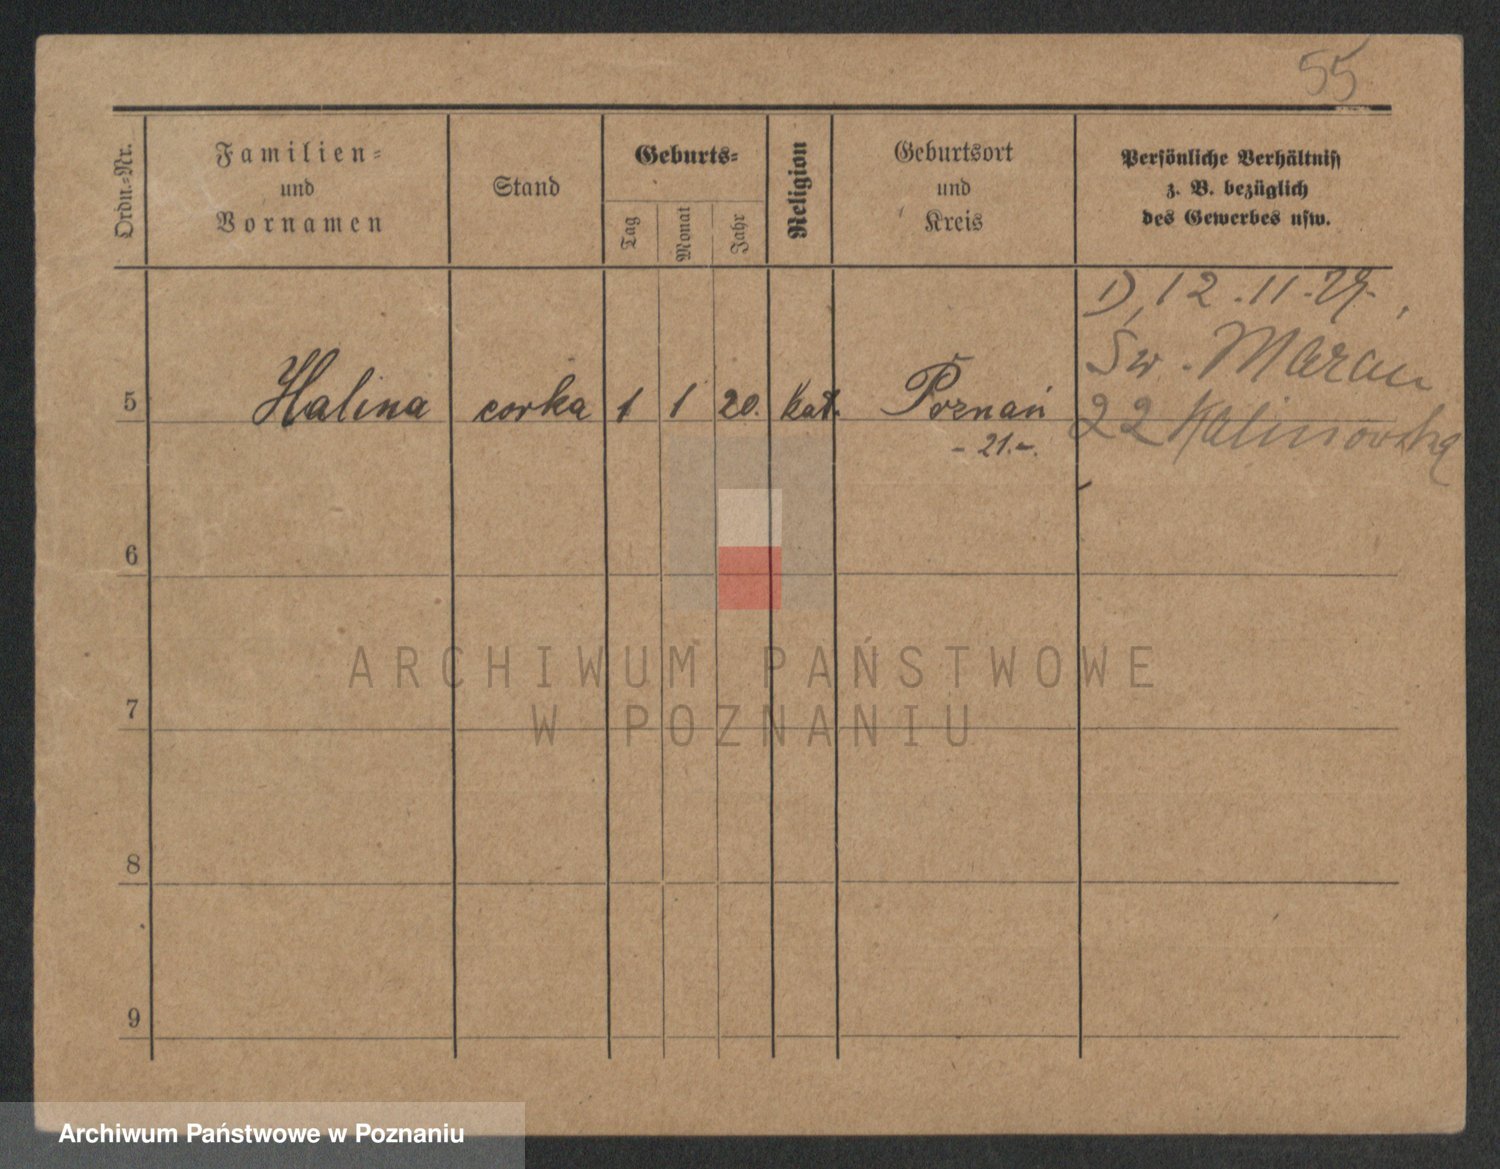 55
Ordn.-Nr.
Familien-
und
Vornamen
Stand
Geburts-
Tag
Monat
Jahr
Religion
Geburtsort
und
Kreis
Persönliche Verhältniss
z. B. bezüglich
des Gewerbes usw.
12.11.
Św.
5 Halina corka 1 1 20. kat. Poznań 22 Kalinowska
- 21. -
6
ARCHIWUM PAŃSTWOWE
W POZNANIU
7
8
9
Archiwum Państwowe w Poznaniu